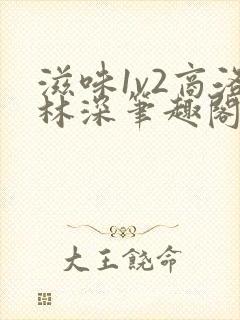 滋味1v2高洛
林深笔趣阁
大王饶命